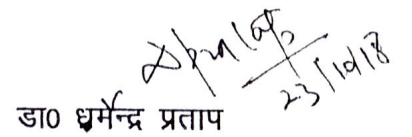 23/10/18
डा0 धर्मेन्द्र प्रताप